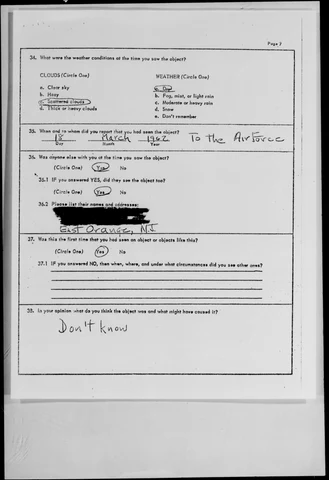 Page 5
34. What were the weather conditions at the time you saw the object?
CLOUDS (Circle One) WEATHER (Circle One)
a. Clear sky a. Dry
b. Hazy b. Fog, mist, or light rain
c. Scattered clouds c. Moderate or heavy rain
d. Thick or heavy clouds d. Snow
e. Don't remember
35. When and to whom did you report that you had seen the object?
18 March 1962 To the Air Force
Day Month Year
36. Was anyone else with you at the time you saw the object?
(Circle One) Yes No
36.1 IF you answered YES, did they see the object too?
(Circle One) Yes No
36.2 Please list their names and addresses:
East Orange, NJ
37. Was this the first time that you had seen an object or objects like this?
(Circle One) Yes No
37.1 IF you answered NO, then when, where, and under what circumstances did you see other ones?
38. In your opinion what do you think the object was and what might have caused it?
Don't know